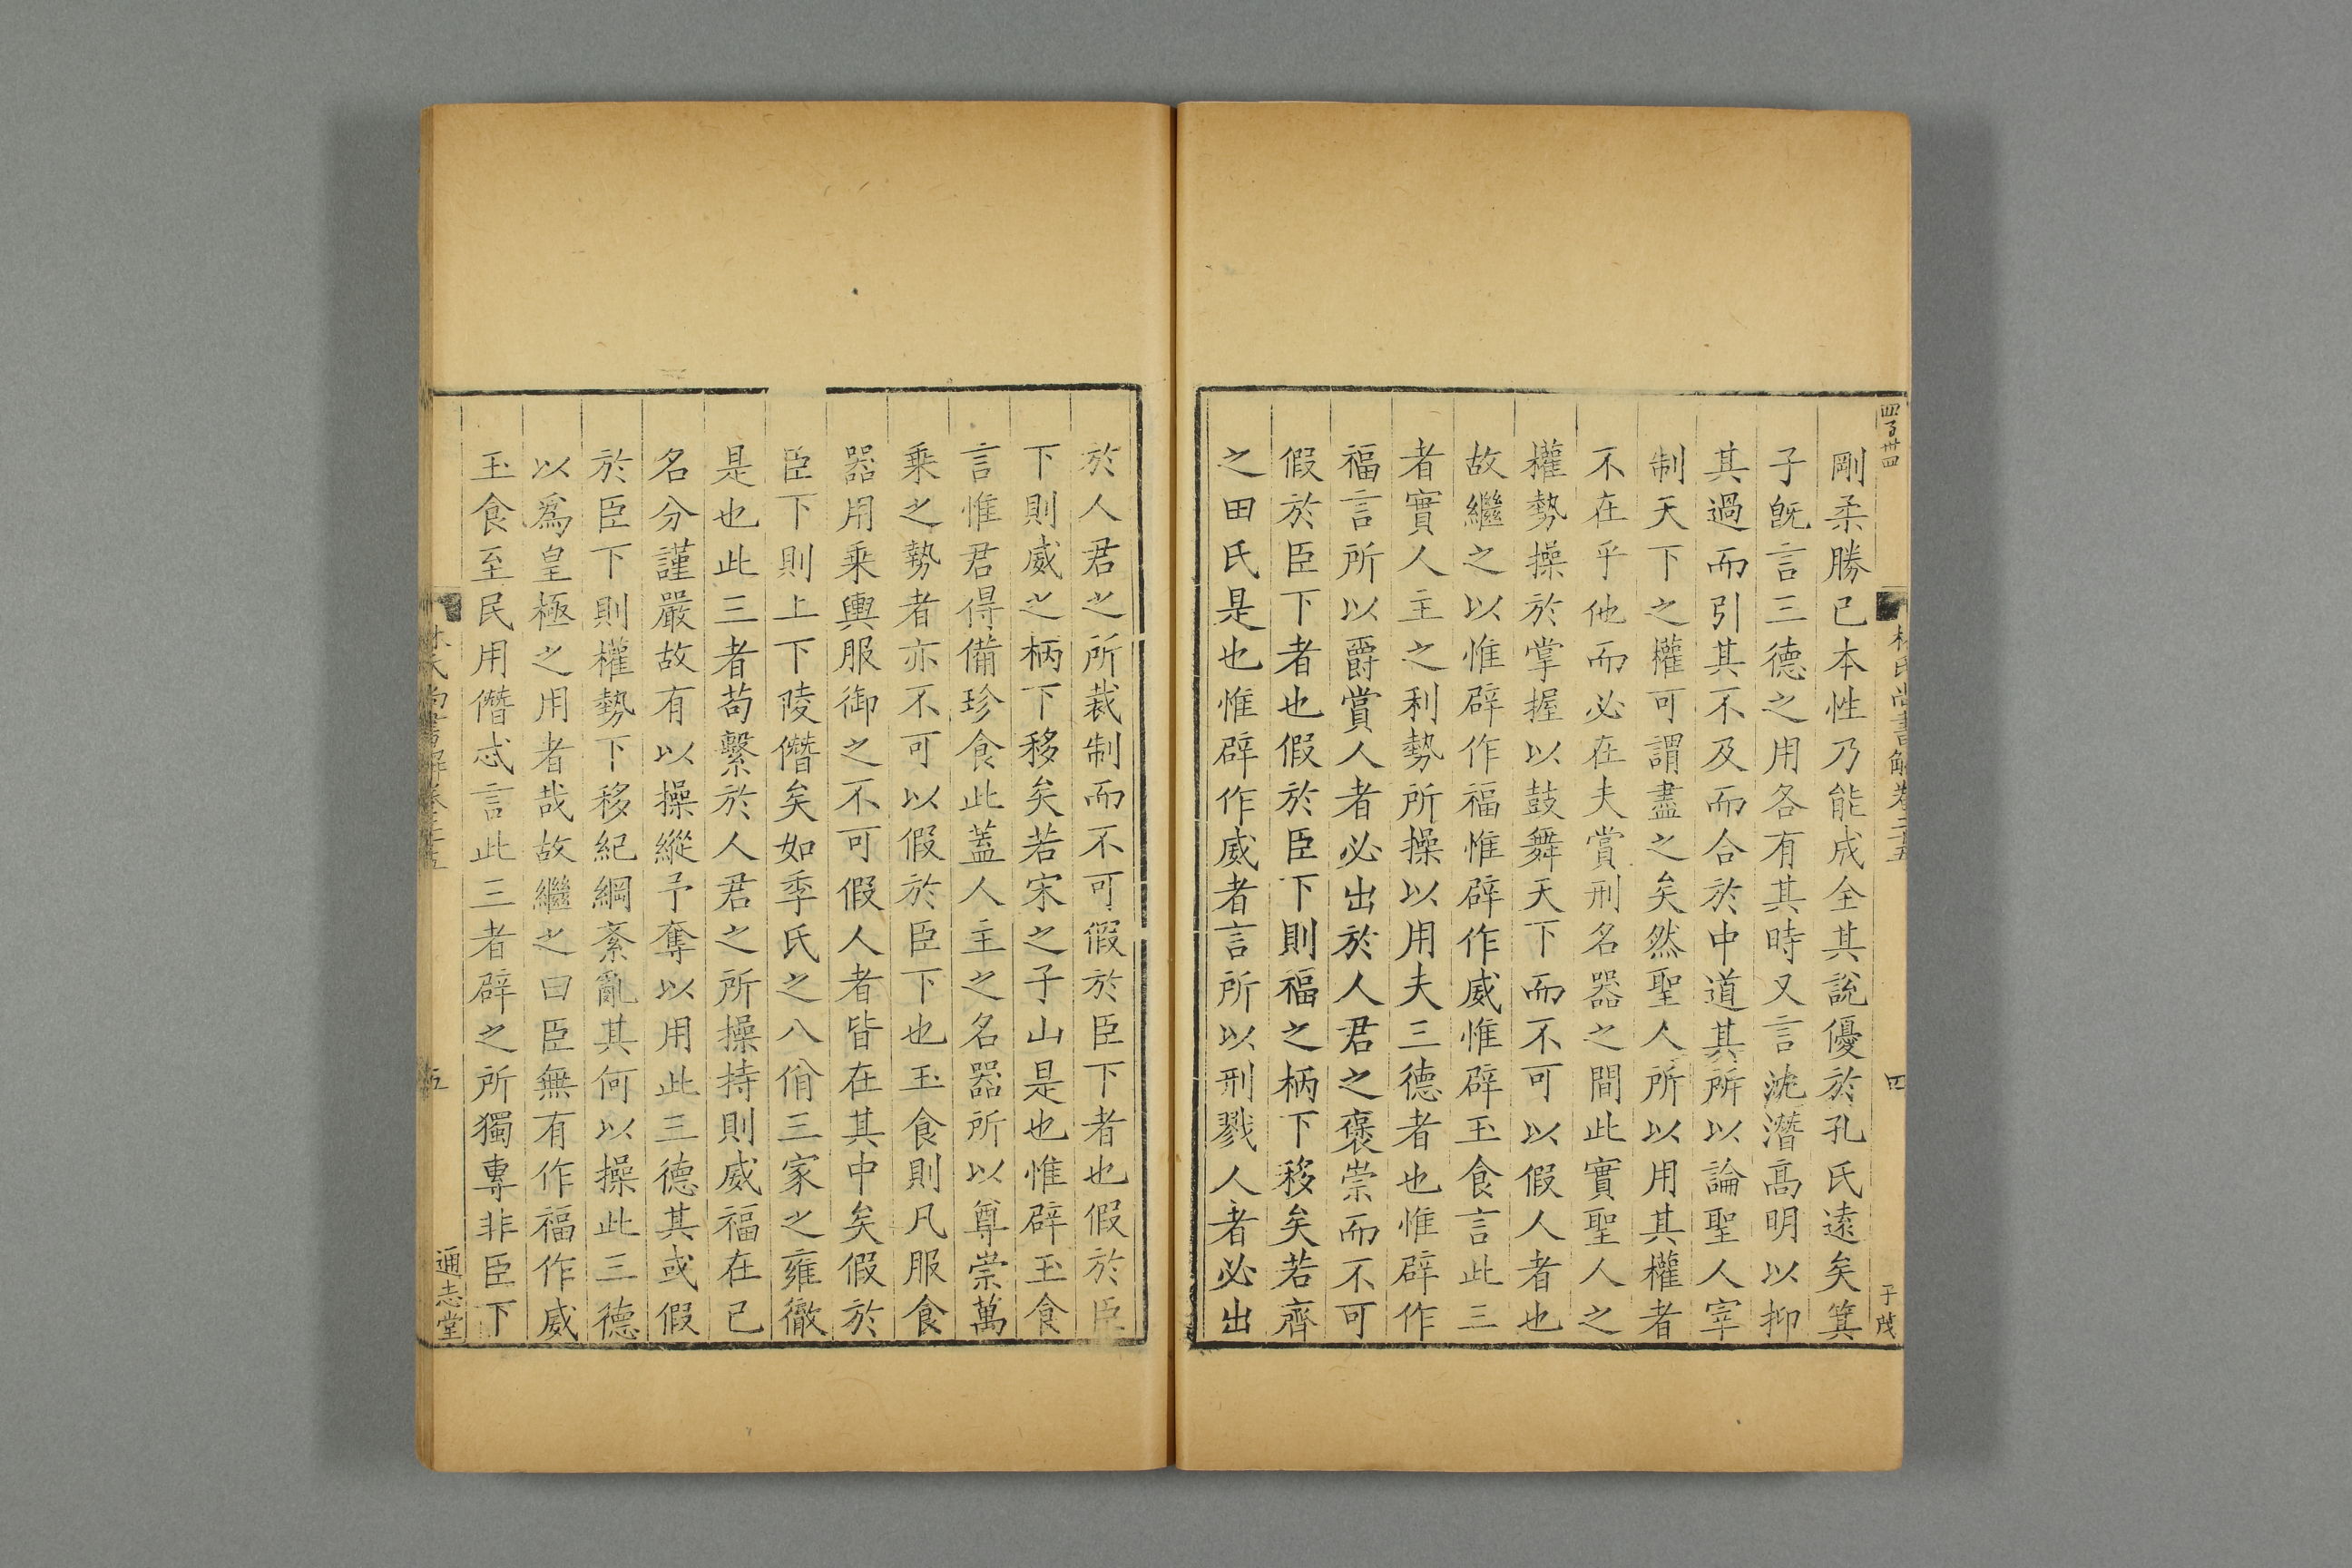 四百卅四
林氏尚書解卷二五
四
子茂
剛柔勝已本性乃能成全其說優於孔氏遠矣箕
子旣言三德之用各有其時又言沈潛高明以抑
其過而引其不及而合於中道其所以論聖人宰
制天下之權可謂盡之矣然聖人所以用其權者
不在乎他而必在夫賞刑名器之間此實聖人之
權勢操於掌握以鼓舞天下而不可以假人者也
故繼之以惟辟作福惟辟作威惟辟玉食言此三
者實人主之利勢所操以用夫三德者也惟辟作
福言所以爵賞人者必出於人君之褒崇而不可
假於臣下者也假於臣下則福之柄下移矣若齊
之田氏是也惟辟作威者言所以刑戮人者必出
於人君之所裁制而不可假於臣下者也假於臣
下則威之柄下移矣若宋之子山是也惟辟玉食
言惟君得備珍食此蓋人主之名器所以尊崇萬
乗之勢者亦不可以假於臣下也玉食則凡服食
器用乗輿服御之不可假人者皆在其中矣假於
臣下則上下陵僭矣如季氏之八佾三家之雍徹
是也此三者苟繫於人君之所操持則威福在已
名分謹嚴故有以操縱予奪以用此三德其或假
於臣下則權勢下移紀綱紊亂其何以操此三德
以爲皇極之用者哉故繼之曰臣無有作福作威
玉食至民用僭忒言此三者辟之所獨專非臣下
林氏尚書解卷二五
五
通志堂